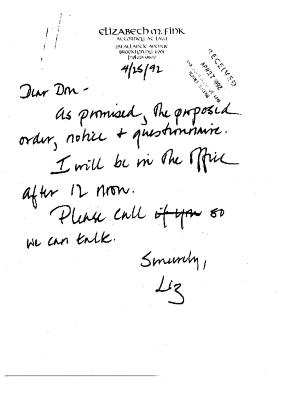 ELIZABETH M. FINK
ATTORNEY AT LAW
ATLANTIC AVENUE
BROOKLYN, N.Y. 11201
4/25/92
RECEIVED
APR 27 1992
Dear Don -
As promised, the proposed
order, notice + questionnaire.
I will be in the office
after 12 noon.
Please call if you so
we can talk.
Sincerely,
Liz